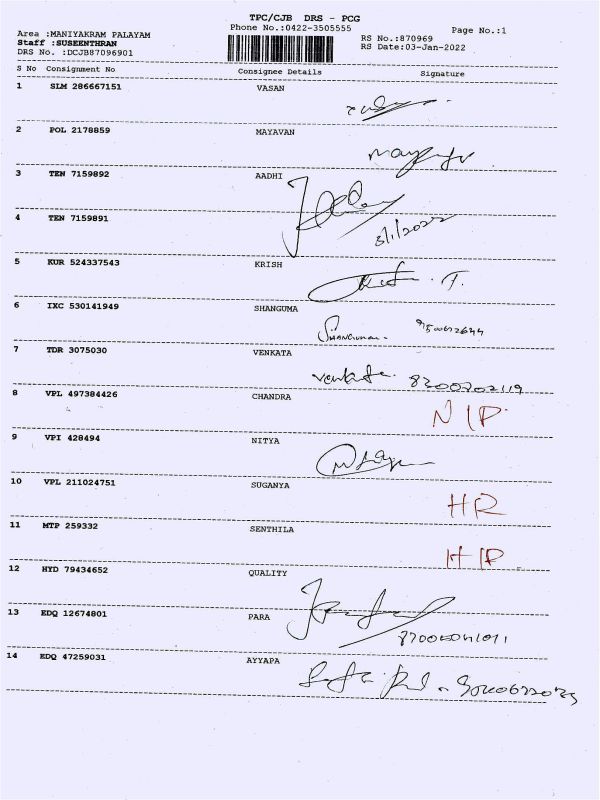 TPC/CJB DRS - PCG
Phone No.:0422-3505555
Page No.:1
Area :MANIYAKRAM PALAYAM
Staff :SUSEENTHRAN
DRS No. :DCJB87096901
RS No.:870969
RS Date:03-Jan-2022
S No Consignment No Consignee Details Signature
1 SLM 286667151 VASAN
2 POL 2178859 MAYAVAN
3 TEN 7159892 AADHI
4 TEN 7159891
3/1/2022
5 KUR 524337543 KRISH
6 IXC 530141949 SHANGUMA
7 TDR 3075030 VENKATA
8 VPL 497384426 CHANDRA
N/P
9 VPI 428494 NITYA
10 VPL 211024751 SUGANYA
HR
11 MTP 259332 SENTHILA
12 HYD 79434652 QUALITY
13 EDQ 12674801 PARA
14 EDQ 47259031 AYYAPA